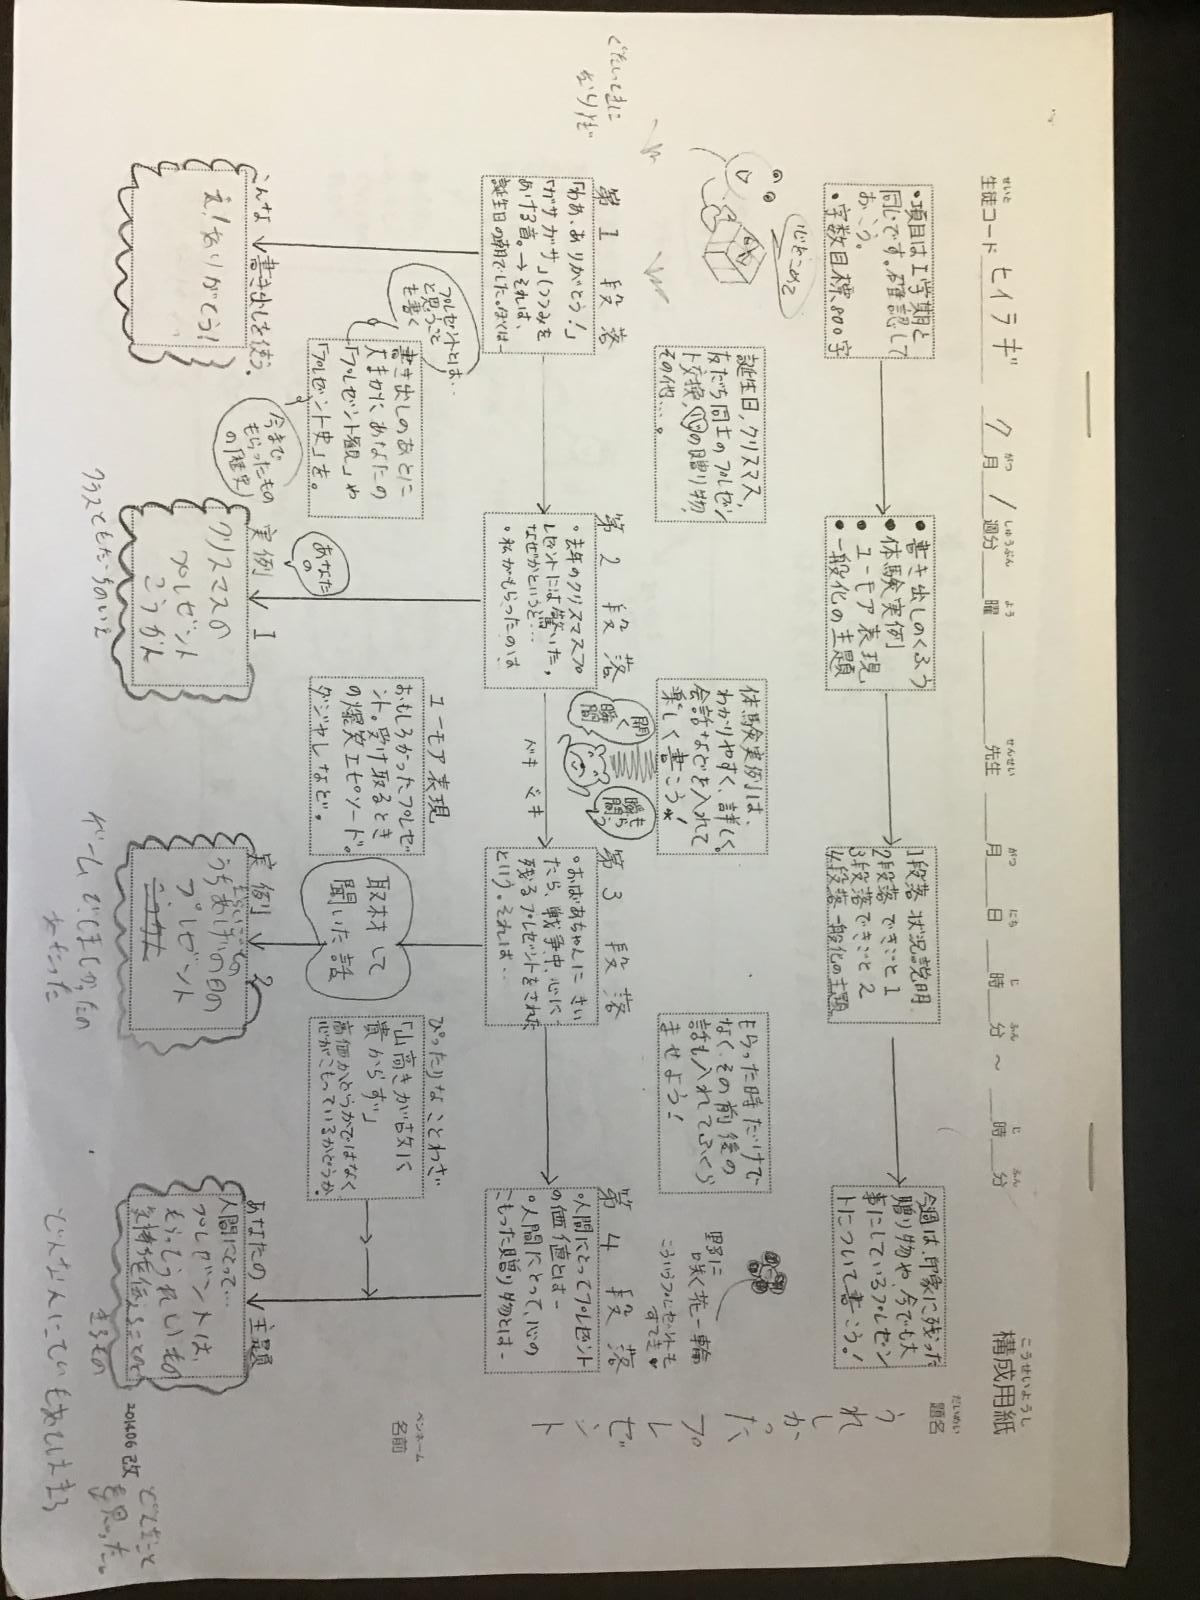 構成用紙
こうせいようし
生徒コード ヒイラギ 9月1週分 曜 先生 月 日 時 分 ～ 時 分
せいと
がつ
しゅうぶん
よう
せんせい
がつ
にち
じ
ふん
じ
ふん
題名
だいめい
うれしかったプレゼント
名前
ペンネーム
・項目はI学期と
同じです。確認して
おこう。
・字数目標800字
●書き出しのくふう
●体験実例
●ユーモア表現
●一般化の主題
1段落 状況説明
2段落 できごと1
3段落 できごと2
4段落 一般化の主題
今週は、印象に残った
贈り物や、今でも大
事にしているプレゼン
トについて書こう!
心をこめて
誕生日、クリスマス、
友だち同士のプレゼン
ト交換、心の贈り物、
その他…。
体験実例は、
わかりやすく、詳しく。
会話などを入れて
楽しく書こう
開く瞬間
もらう瞬間
ドキドキ
もらった時だけで
なく、その前後の
話も入れてふくら
ませよう!
野に
咲く花一輪
こういうプレゼントも
すてき
ぐたいてきに
第1段落
「わあ、ありがとう!」
「ガサガサ」(つつみを
あける音。→それは、
誕生日の朝でした。ぼくは…
第2段落
・去年のクリスマスプ
レゼントには驚いた。
なぜかというと…
・私がもらったのは
第3段落
・おばあちゃんに きい
たら、戦争中、心に
残るプレゼントをされた
という。それは…
第4段落
・人間にとってプレゼント
の価値とは…
・人間にとって、心の
こもった贈り物とは…
プレゼントとは…
と思うこと
も書く
書き出しのあとに
大まかに、あなたの
「プレゼント観」や
「プレゼント史」を。
今まで
もらったもの
の「歴史」
ユーモア表現
おもしろかったプレゼ
ント。受け取るとき
の爆笑エピソード。
ダジャレなど。
取材して
聞いた話
ぴったりなことわざ
「山高きが故に
貴からず」
高価かどうかではなく
心がこもっているかどうか。
こんな書き出しを使う。
実例1
あなたの
クリスマスの
プレゼント
こうかん
実例2
うちあげの日の
プレゼント
あなたの主題
人間にとって…
プレゼントは、
もらってうれしいもの
気持ちを伝えることの
できるもの
2014.06改